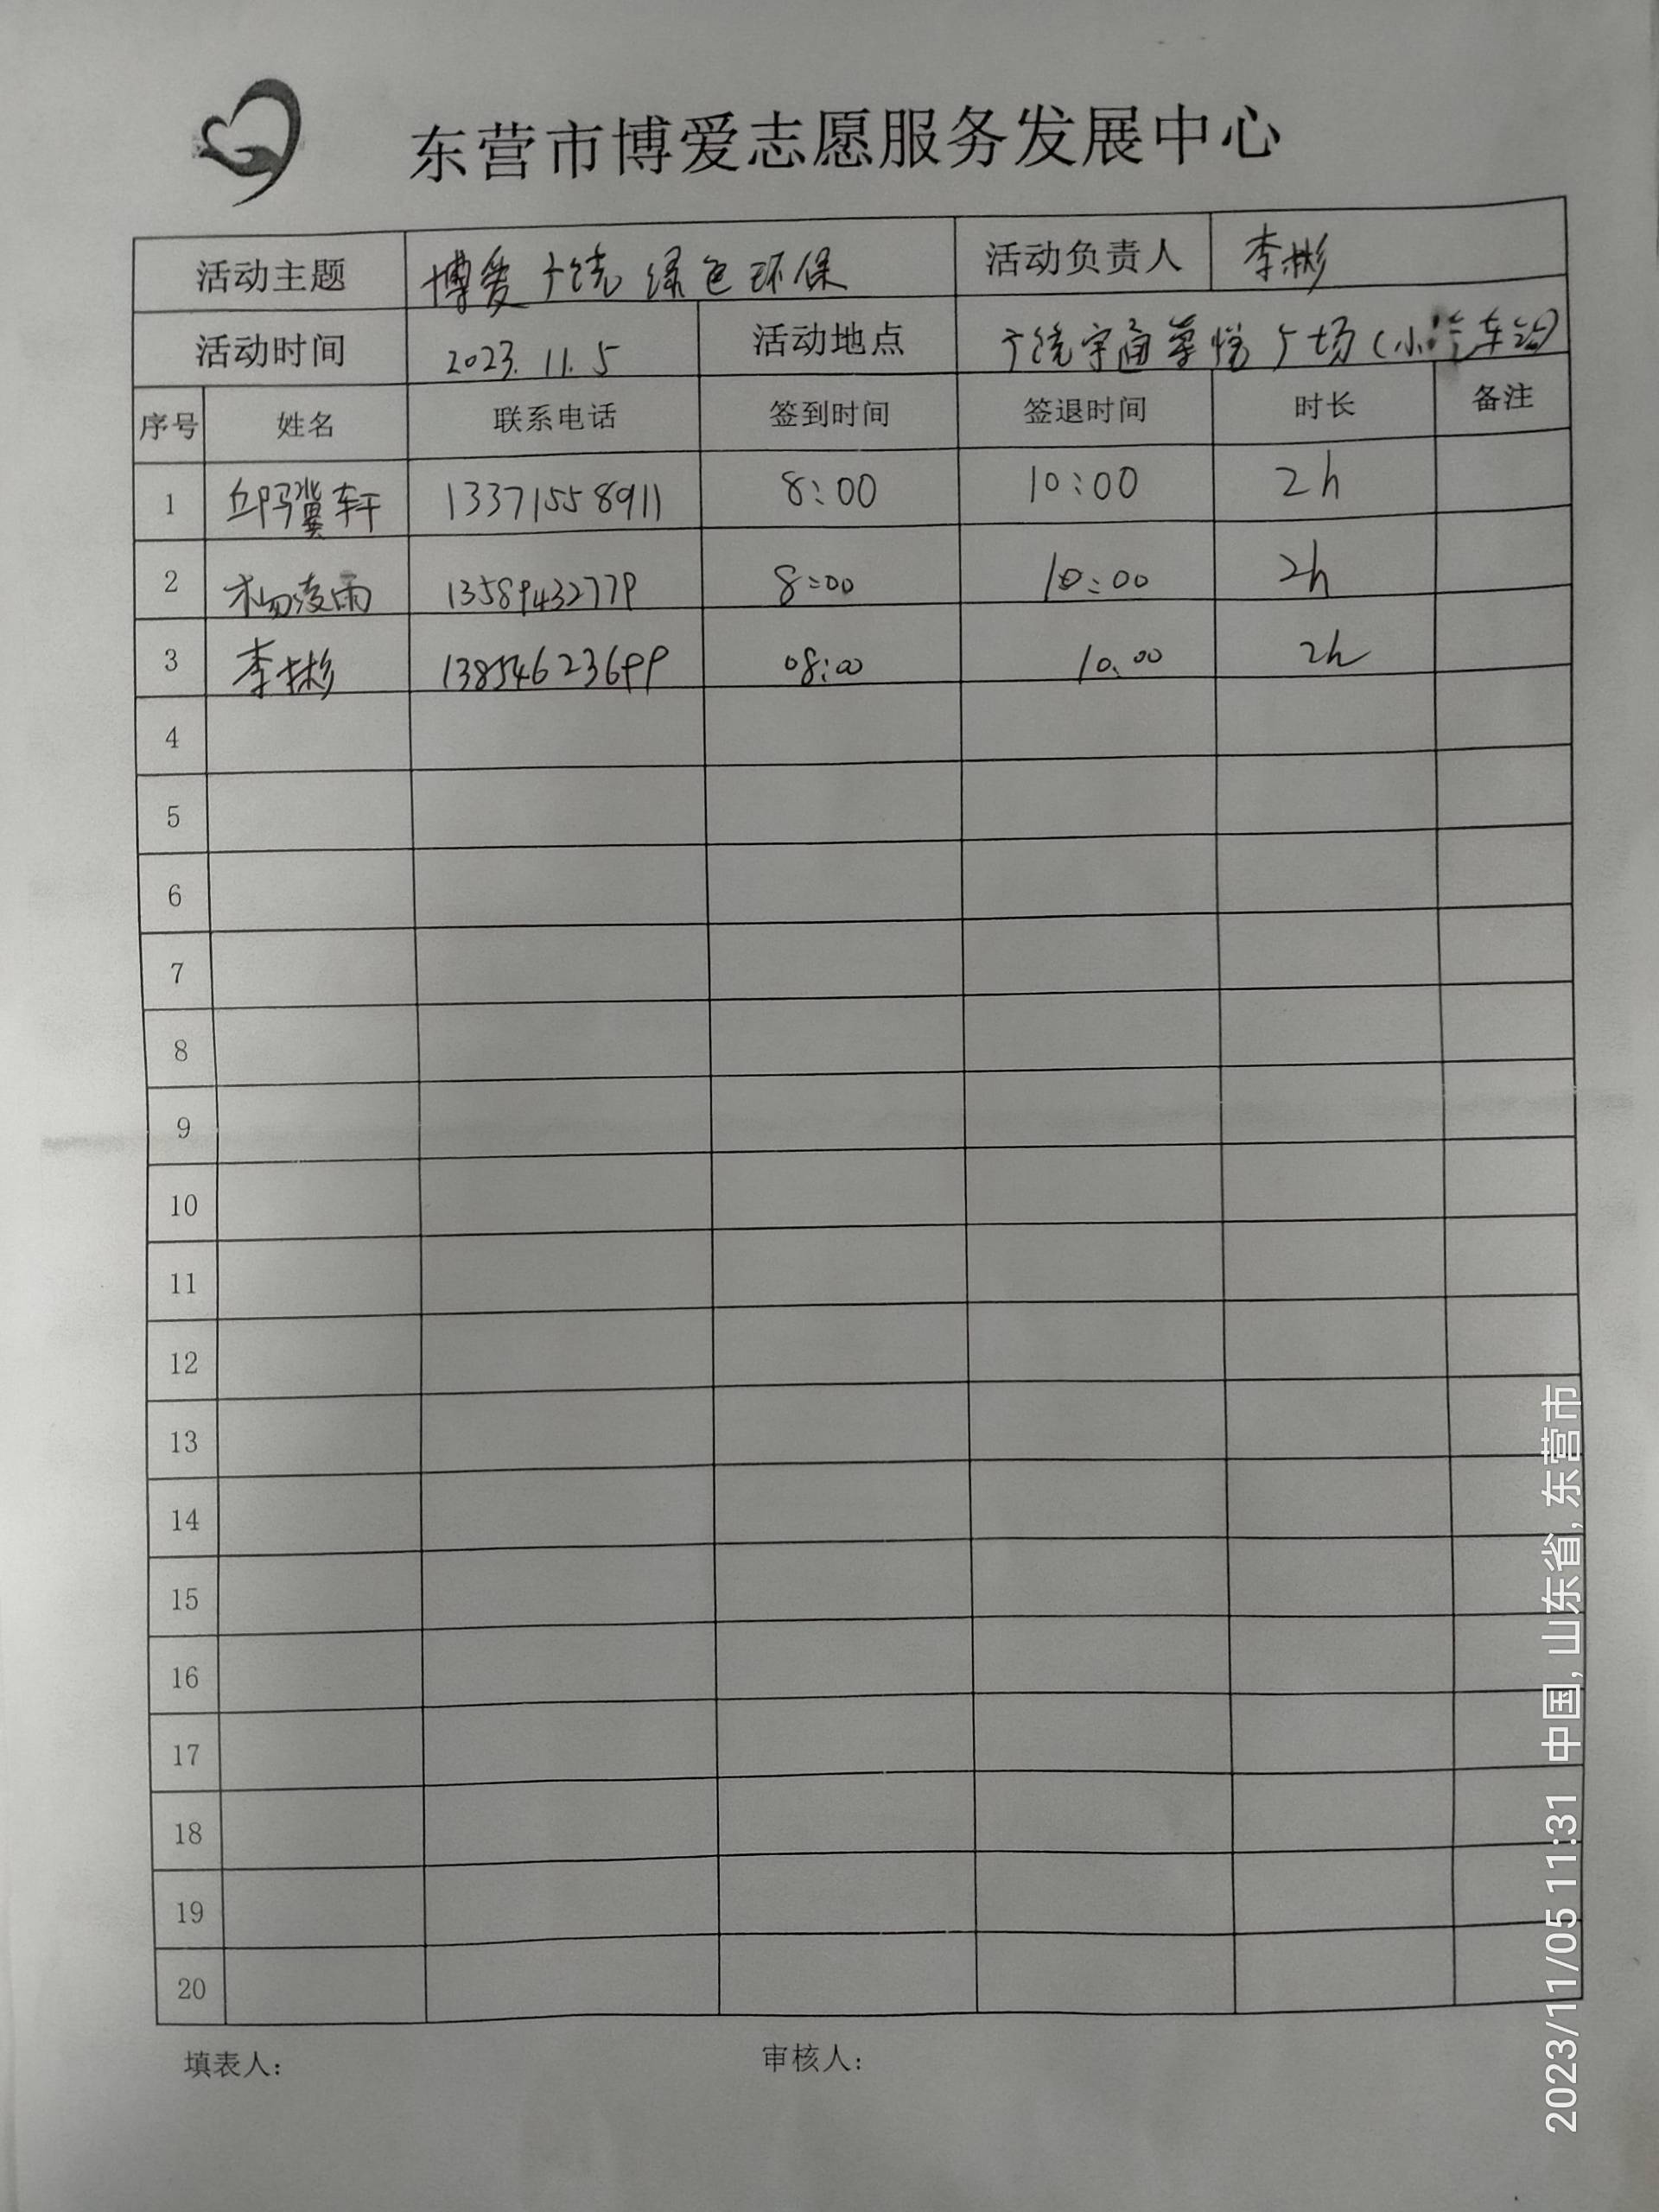 东营市博爱志愿服务发展中心
活动主题 博爱广饶 绿色环保 活动负责人 李彬
活动时间 2023.11.5 活动地点 广饶宇通尊悦广场(小汽车站)
序号 姓名 联系电话 签到时间 签退时间 时长 备注
1 邱骥轩 13371558911 8:00 10:00 2h
2 杨凌雨 13589432779 8:00 10:00 2h
3 李彬 13854623699 08:00 10.00 2h
4
5
6
7
8
9
10
11
12
13
14
15
16
17
18
19
20
填表人: 审核人:
2023/11/05 11:31 中国, 山东省, 东营市